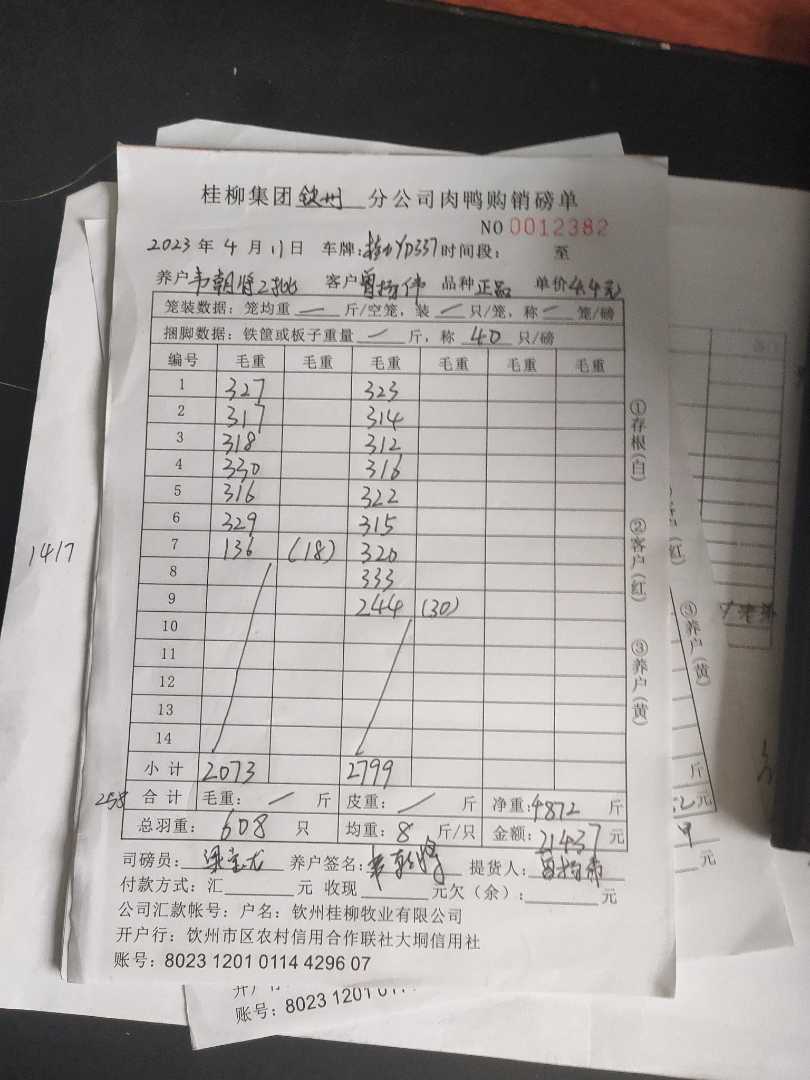 桂柳集团 钦州 分公司肉鸭购销磅单
NO 0012382
2023 年 4 月 11 日 车牌: YD337 时间段: 至
养户 韦朝将2批 客户 曾扬伟 品种 正品 单价 4.4元
笼装数据: 笼均重 — 斤/空笼, 装 — 只/笼, 称 — 笼/磅
捆脚数据: 铁筐或板子重量 — 斤, 称 40 只/磅
编号 毛重 毛重 毛重 毛重 毛重 毛重
1 327 323
2 317 314
3 318 312
4 330 316
5 316 322
6 329 315
7 136 (18) 320
8 333
9 244 (30)
10
11
12
13
14
小计 2073 2799
258 合计 毛重: / 斤 皮重: / 斤 净重: 4872 斤
总羽重: 608 只 均重: 8 斤/只 金额: 21437 元
司磅员: 养户签名: 韦朝将 提货人: 曾扬伟
付款方式: 汇 元 收现 元欠(余): 元
公司汇款帐号: 户名: 钦州桂柳牧业有限公司
开户行: 钦州市区农村信用合作联社大垌信用社
账号: 8023 1201 0114 4296 07
①存根(白) ②客户(红) ③养户(黄)
1417
(红)
③养户(黄)
斤
元
元
账号: 8023 1201